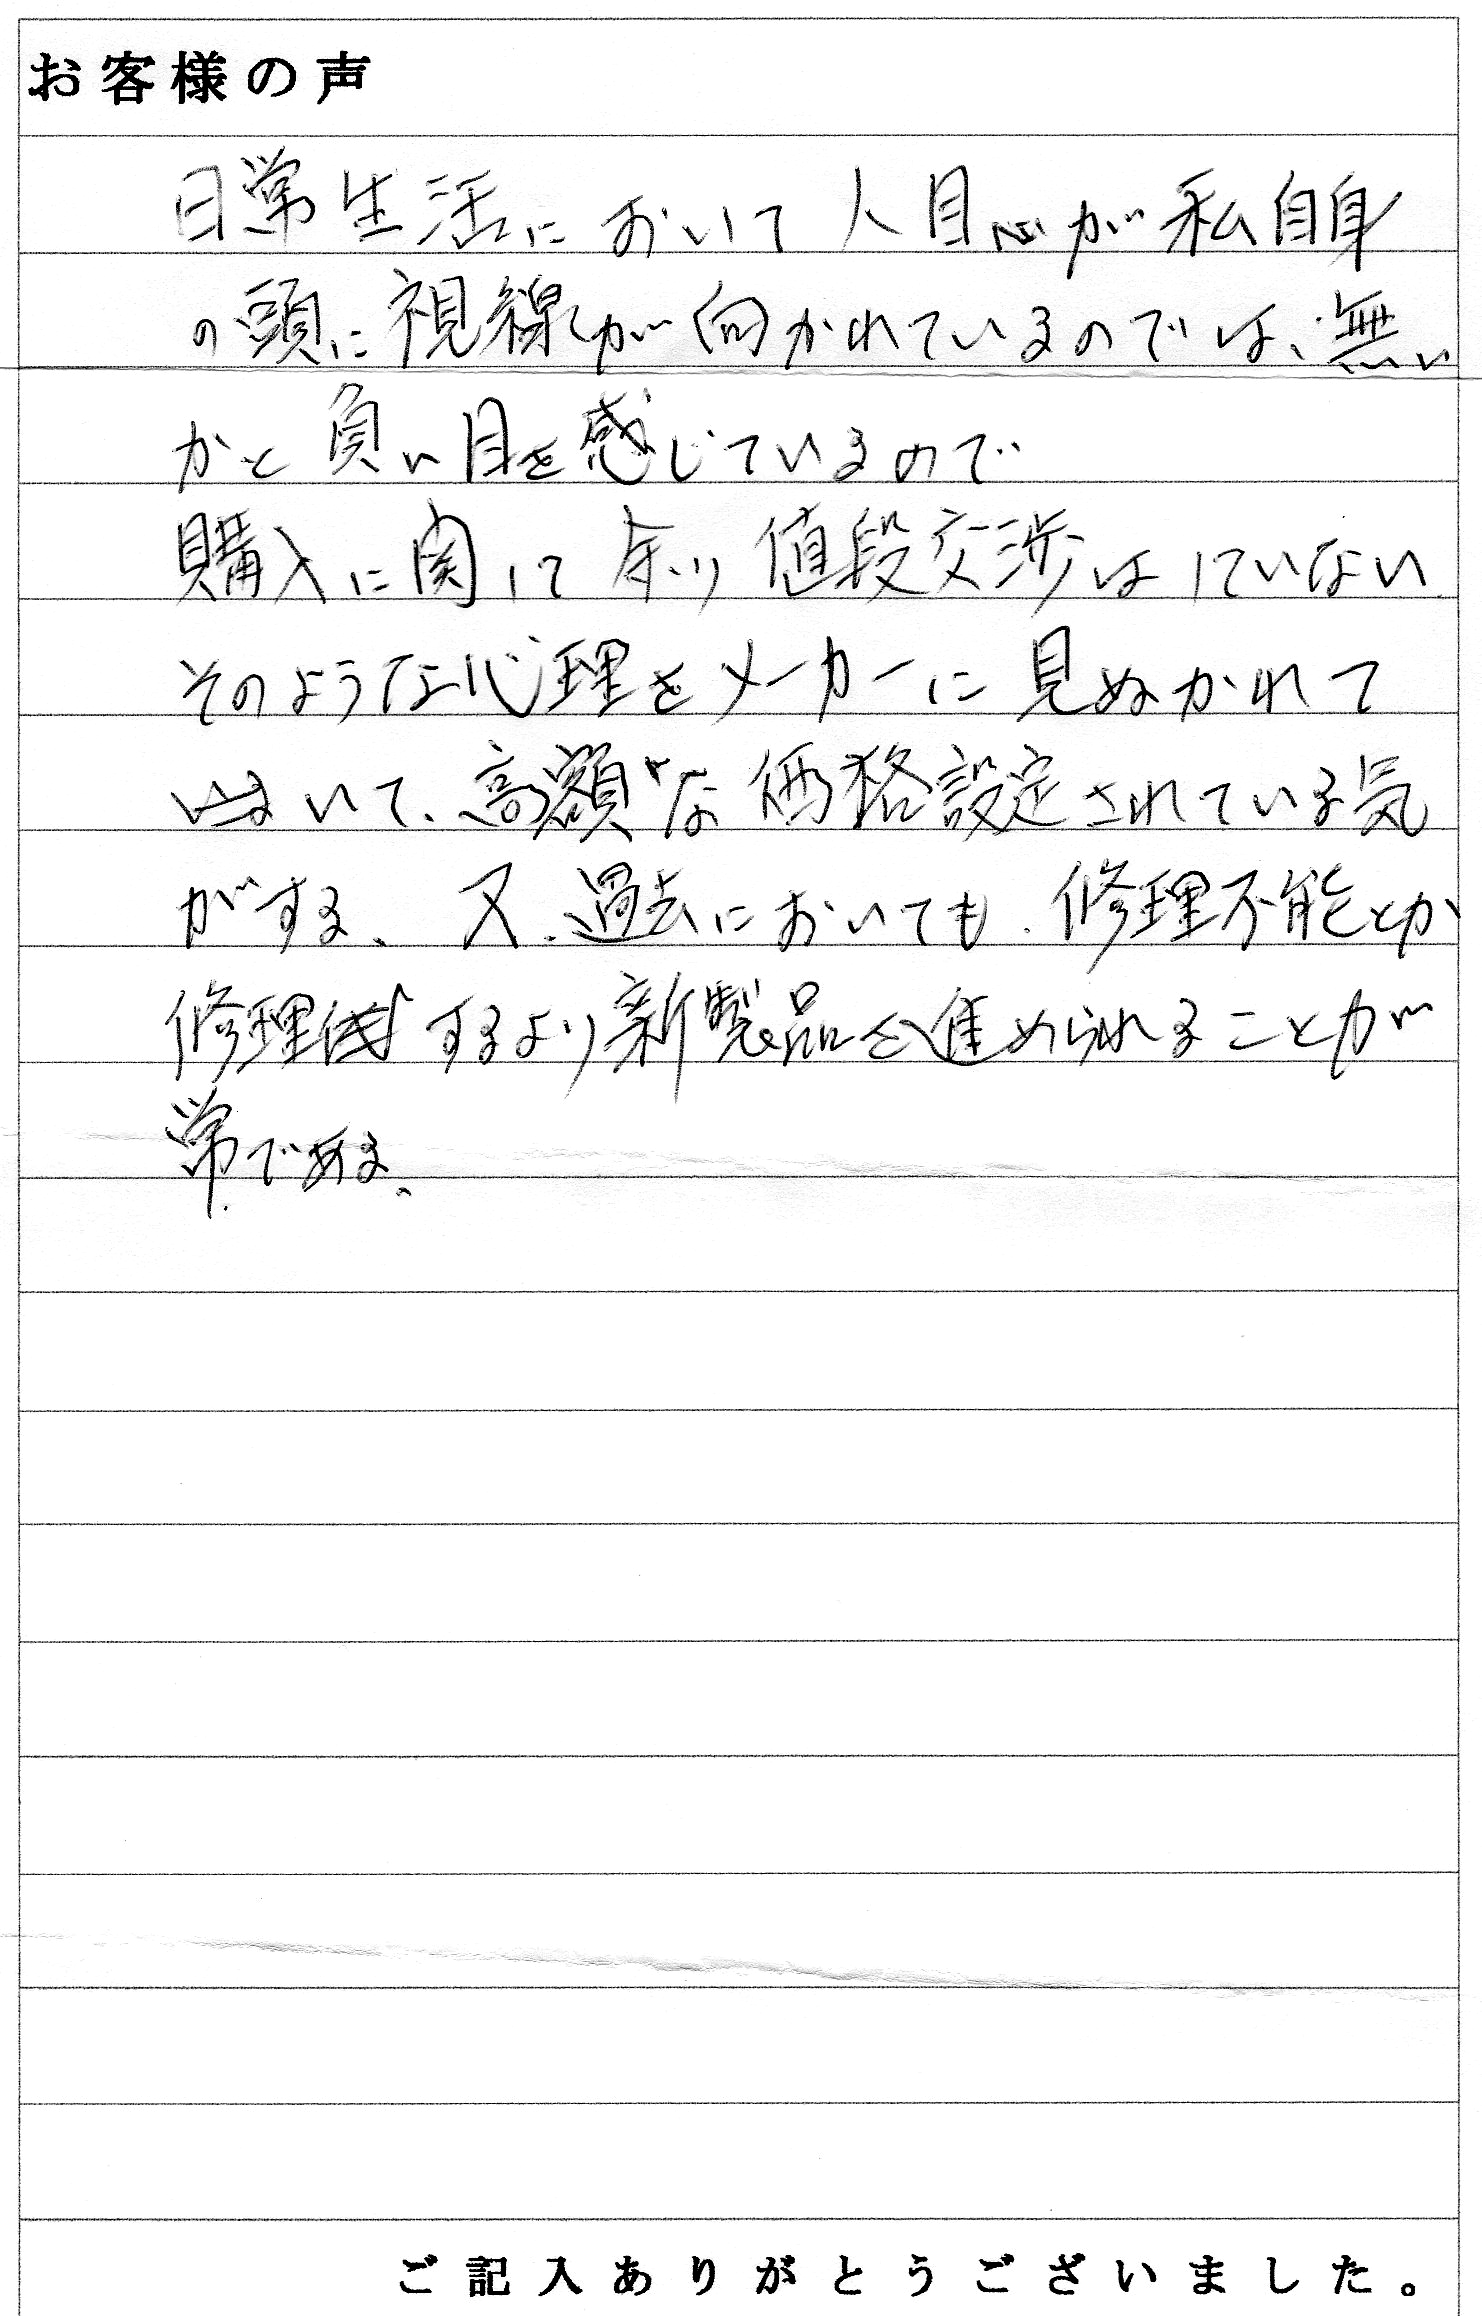 お客様の声
日常生活において人目が私自身
の頭に視線が向かれているのでは、無い
かと負い目を感じているので
購入に関して余り値段交渉はしていない
そのような心理をメーカーに見ぬかれて
いて、高額な価格設定されている気
がする、又、過去においても、修理不能とか
修理するより新製品を進められることが
常である、
ご記入ありがとうございました。